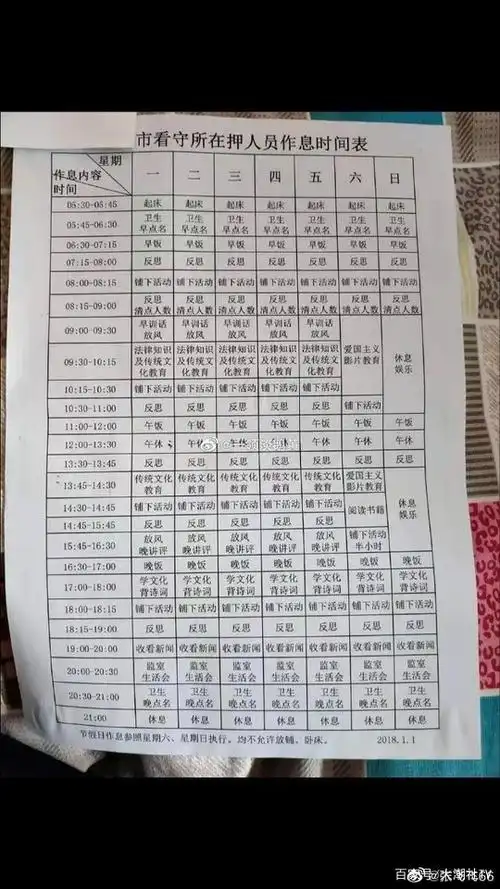 市看守所在押人员作息时间表
星期
作息内容
时间
一 二 三 四 五 六 日
05:30-05:45 起床 起床 起床 起床 起床 起床 起床
05:45-06:30 卫生 早点名 卫生 早点名 卫生 早点名 卫生 早点名 卫生 早点名 卫生 早点名 卫生 早点名
06:30-07:15 早饭 早饭 早饭 早饭 早饭 早饭 早饭
07:15-08:00 反思 反思 反思 反思 反思 反思 反思
08:00-08:15 铺下活动 铺下活动 铺下活动 铺下活动 铺下活动 铺下活动 铺下活动
08:15-09:00 反思 清点人数 反思 清点人数 反思 清点人数 反思 清点人数 反思 清点人数 反思 清点人数 反思 清点人数
09:00-09:30 早训话 放风 早训话 放风 早训话 放风 早训话 放风 早训话 放风 爱国主义 影片教育 休息 娱乐
09:30-10:15 法律知识 及传统文 化教育 法律知识 及传统文 化教育 法律知识 及传统文 化教育 法律知识 及传统文 化教育 法律知识 及传统文 化教育
10:15-10:30 铺下活动 铺下活动 铺下活动 铺下活动 铺下活动
10:30-11:00 反思 反思 反思 反思 反思 铺下活动
11:00-12:00 午饭 午饭 午饭 午饭 午饭 午饭 午饭
12:00-13:30 午休 午休 午休 午休 午休 午休 午休
13:30-13:45 反思 反思 反思 反思 反思 反思 反思
13:45-14:30 传统文化 教育 传统文化 教育 传统文化 教育 传统文化 教育 传统文化 教育 爱国主义 影片教育 休息 娱乐
14:30-14:45 铺下活动 铺下活动 铺下活动 铺下活动 铺下活动 阅读书籍
14:45-15:45 反思 反思 反思 反思 反思
15:45-16:30 放风 晚讲评 放风 晚讲评 放风 晚讲评 放风 晚讲评 放风 晚讲评 铺下活动 半小时
16:30-17:00 晚饭 晚饭 晚饭 晚饭 晚饭 晚饭 晚饭
17:00-18:00 学文化 背诗词 学文化 背诗词 学文化 背诗词 学文化 背诗词 学文化 背诗词 学文化 背诗词 学文化 背诗词
18:00-18:15 铺下活动 铺下活动 铺下活动 铺下活动 铺下活动 铺下活动 铺下活动
18:15-19:00 反思 反思 反思 反思 反思 反思 反思
19:00-20:00 收看新闻 收看新闻 收看新闻 收看新闻 收看新闻 收看新闻 收看新闻
20:00-20:30 监室 生活会 监室 生活会 监室 生活会 监室 生活会 监室 生活会 监室 生活会 监室 生活会
20:30-21:00 卫生 晚点名 卫生 晚点名 卫生 晚点名 卫生 晚点名 卫生 晚点名 卫生 晚点名 卫生 晚点名
21:00 休息 休息 休息 休息 休息 休息 休息
节假日作息参照星期六、星期日执行。均不允许放铺、卧床。 2018.1.1